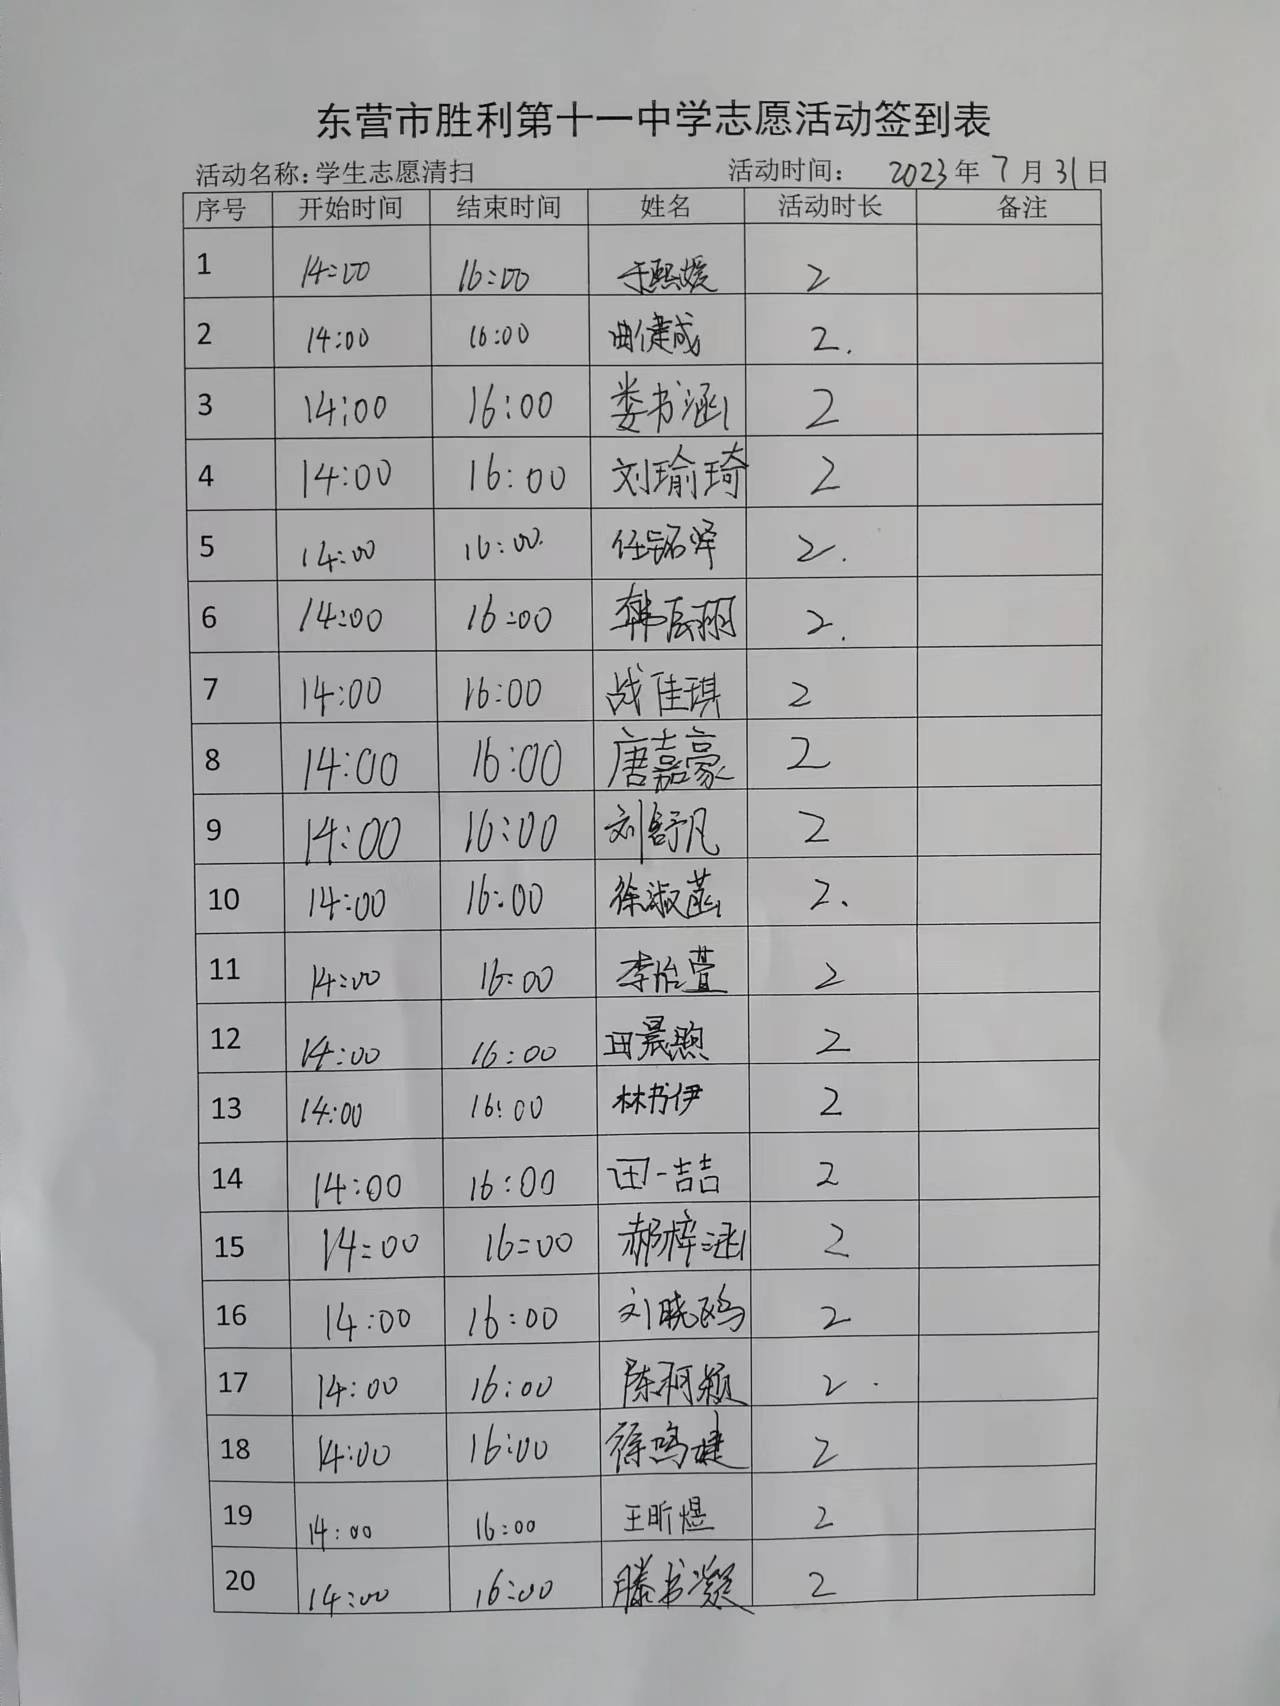 东营市胜利第十一中学志愿活动签到表
活动名称：学生志愿清扫 活动时间： 2023年7月31日
序号 开始时间 结束时间 姓名 活动时长 备注
1 14:00 16:00 于熙媛 2
2 14:00 16:00 曲健成 2.
3 14:00 16:00 娄书涵 2
4 14:00 16:00 刘瑜琦 2
5 14:00 16:00. 任铭泽 2.
6 14:00 16:00 韩辰翔 2.
7 14:00 16:00 战佳琪 2
8 14:00 16:00 唐嘉豪 2
9 14:00 16:00 刘舒凡 2
10 14:00 16:00 徐淑菡 2.
11 14:00 16:00 李怡萱 2
12 14:00 16:00 田晨煦 2
13 14:00 16:00 林书伊 2
14 14:00 16:00 田一喆 2
15 14:00 16:00 郝梓涵 2
16 14:00 16:00 刘晓鸥 2
17 14:00 16:00 陈珂颖 2.
18 14:00 16:00 徐鸣婕 2
19 14:00 16:00 王昕煜 2
20 14:00 16:00 滕书凝 2